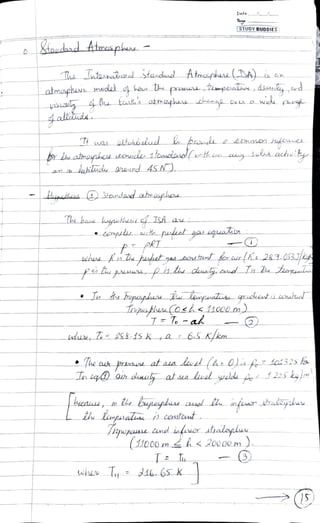 Date
Page
STUDY BUDDIES
Standard Atmosphere -
The International Standard Atmosphere (ISA) is an
atmospheric model of how the pressure, temperature, density, and
viscosity of the Earth's atmosphere change over a wide range
of altitudes.
It was established to provide a common reference
for the atmosphere consider standard (with an any solar activity
an in latitudes around 45 N).
Hypothesis ① Standard atmosphere
The basic hypothesis of ISA are
• complies with perfect gas equation
p = ρRT — ①
where R is the perfect gas constant for air (R = 287.053 J/kgK
p is the pressure, ρ is the density, and T is the temperature
• In the troposphere the temperature gradient is constant
Troposphere (0 ≤ h < 11000 m)
T = T₀ - ah — ②
where, T₀ = 288.15 K, a = 6.5 K/km
• The air pressure at sea level (h = 0) is p₀ = 101325 Pa
In eq ① air density at sea level yields ρ₀ = 1.225 kg/m³
because, in the tropopause and the inferior stratosphere
the temperature is constant.
Tropopause and inferior stratosphere
(11000 m ≤ h < 20000 m).
T = T₁₁ — ③
where T₁₁ = 216.65 K
15